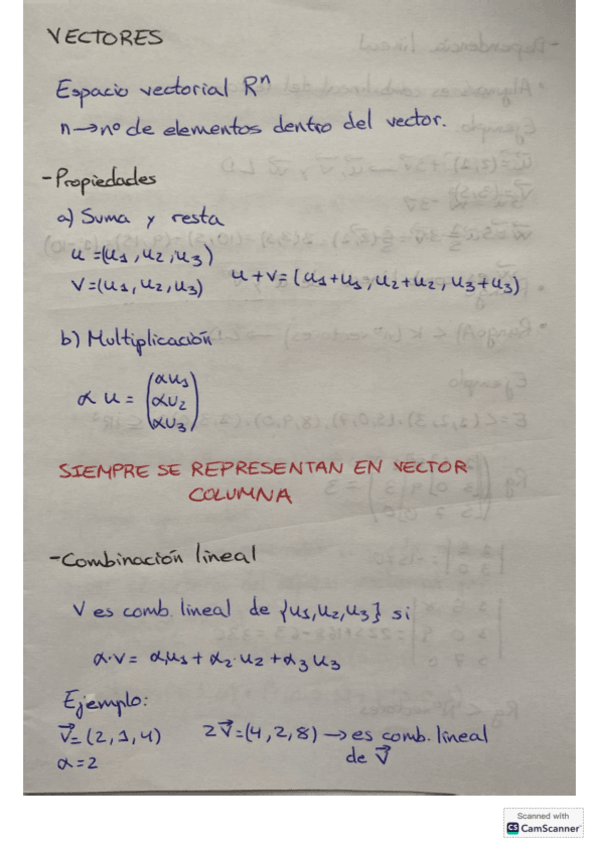 VECTORES
Espacio vectorial Rⁿ
n→nº de elementos dentro del vector.
-Propiedades
a) Suma y resta
u=(u₁,u₂,u₃)
V=(u₁,u₂,u₃) u+v=(u₁+u₁,u₂+u₂,u₃+u₃)
b) Multiplicación
α u = (αu₁
αu₂
αu₃)
SIEMPRE SE REPRESENTAN EN VECTOR
COLUMNA
-Combinación lineal
V es comb. lineal de {u₁,u₂,u₃} si
α·v= α₁u₁+α₂·u₂+α₃u₃
Ejemplo:
V⃗=(2,1,4) 2V⃗=(4,2,8)→es comb. lineal
α=2 de V⃗
Scanned with
CS CamScanner